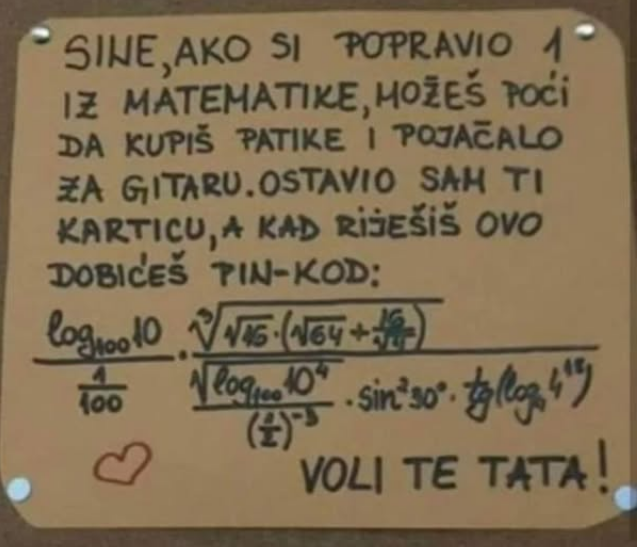 SINE, AKO SI POPRAVIO 1
IZ MATEMATIKE, MOŽEŠ POĆI
DA KUPIŠ PATIKE I POJAČALO
ZA GITARU. OSTAVIO SAM TI
KARTICU, A KAD RIJEŠIŠ OVO
DOBIĆEŠ PIN-KOD:
log₁₀₀10 / (1/100) · ∛(√16·(√64+
√(log₁₀₀10⁴) / (1/2)⁻³ · sin²30° · tg(log₄4
VOLI TE TATA!